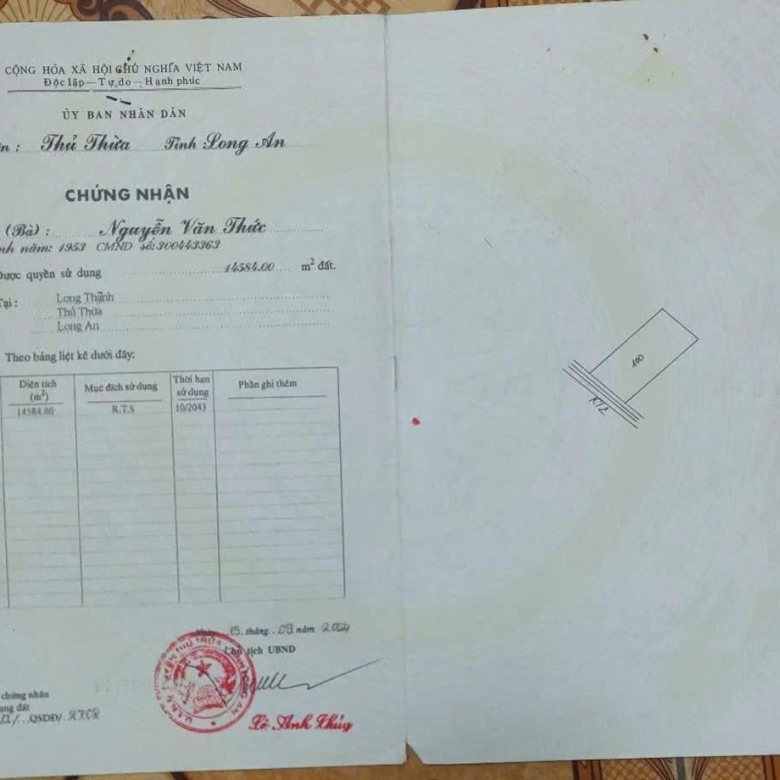 CỘNG HÒA XÃ HỘI CHỦ NGHĨA VIỆT NAM
Độc lập - Tự do - Hạnh phúc
ỦY BAN NHÂN DÂN
Thủ Thừa Tỉnh Long An
CHỨNG NHẬN
(Bà): Nguyễn Văn Thức
nh năm: 1953 CMND số: 300443363
Được quyền sử dụng 14584.00 m² đất.
Tại: Long Thạnh
Thủ Thừa
Long An
Theo bảng liệt kê dưới đây:
Diện tích (m²) Mục đích sử dụng Thời hạn sử dụng Phần ghi thêm
14584.00 R.T.S 10/2043
190
15 tháng 09 năm 2004
Chủ tịch UBND
chứng nhận
QSDĐ/
Lê Anh Thủy